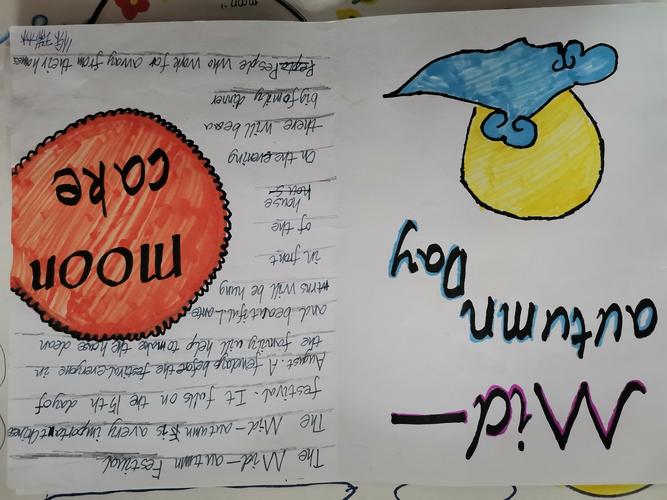 Mid-
autumn
Day
The Mid-autumn Festival
The Mid-autumn is a very important Chines
festival. It falls on the 15th day of
August. A fendays before the festival.everyone in
the family will help to make the house clean
and beautiful.Lante
rns will be hung
in front
of the
house
On the evening
there will be a
big family dinner
People who work far away from their homes
moon
cake